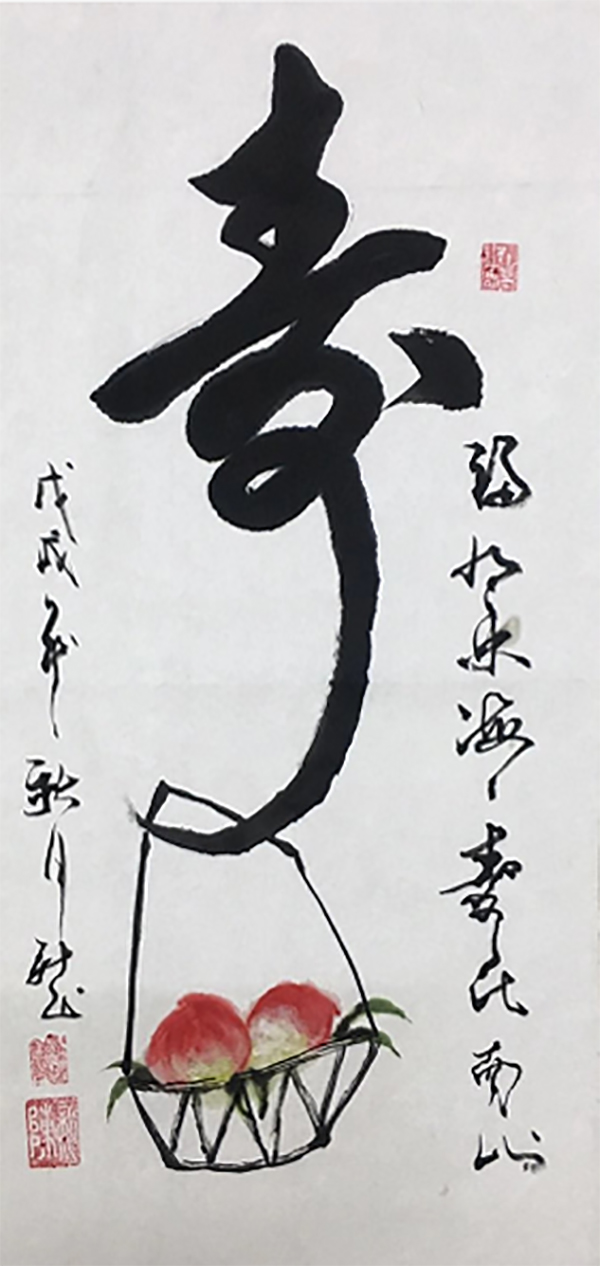 寿
福如东海
壽比南山
戊戌年秋月